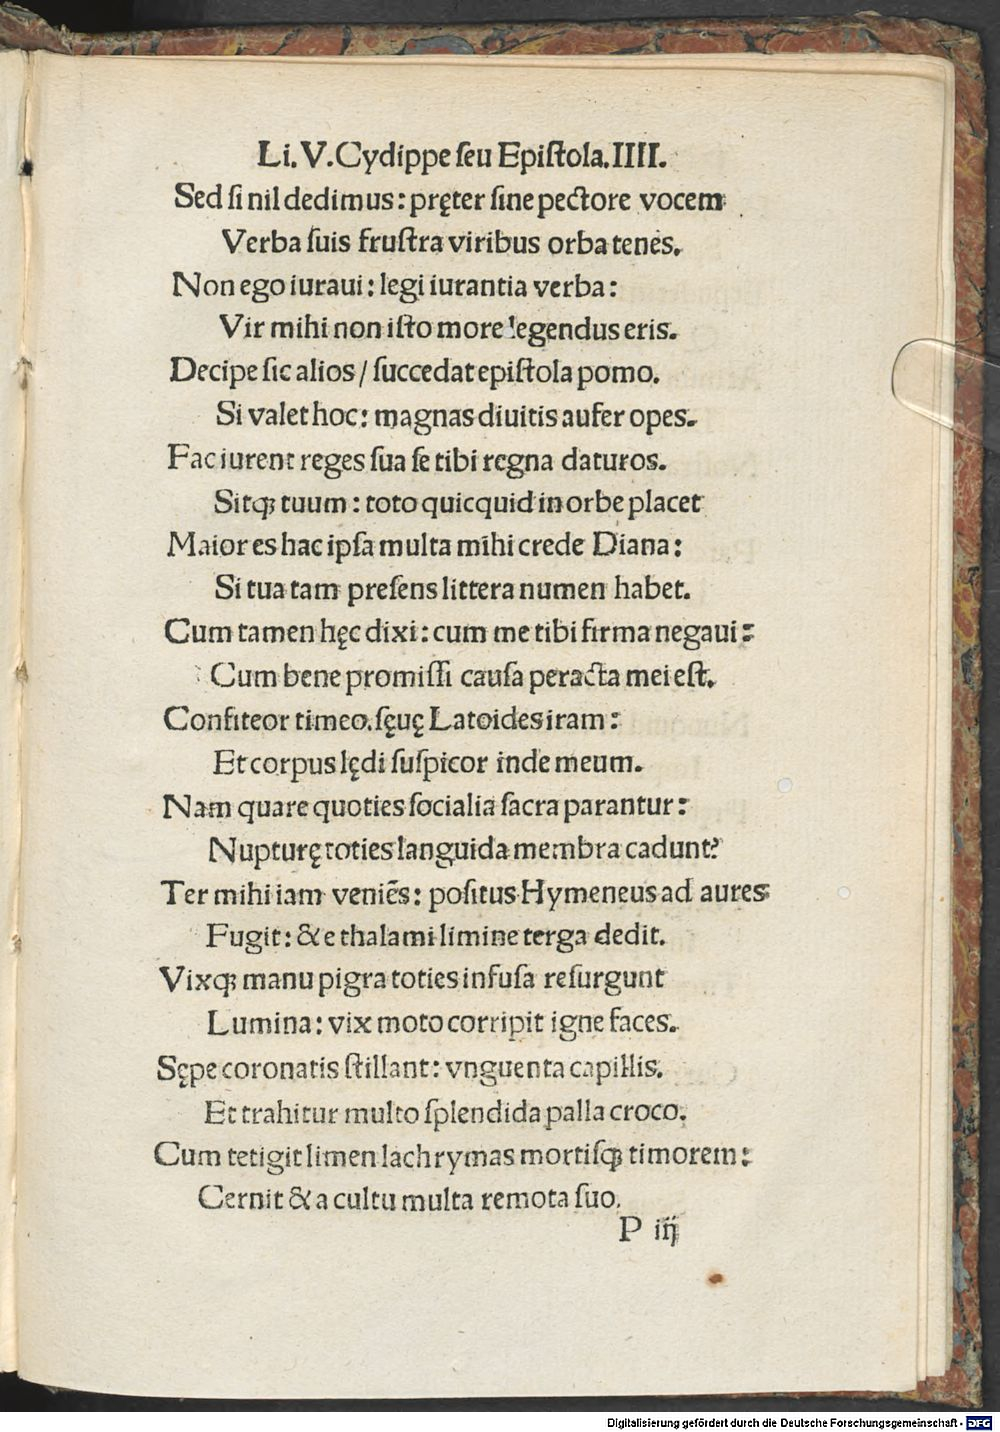 Li. V. Cydippe seu Epistola. IIII.
Sed si nil dedimus: pręter sine pectore vocem
Verba suis frustra viribus orba tenes.
Non ego iuraui: legi iurantia verba:
Vir mihi non isto more legendus eris.
Decipe sic alios / succedat epistola pomo.
Si valet hoc: magnas diuitis aufer opes.
Fac iurent reges sua se tibi regna daturos.
Sitqꝫ tuum: toto quicquid in orbe placet
Maior es hac ipsa multa mihi crede Diana:
Si tua tam presens littera numen habet.
Cum tamen hęc dixi: cum me tibi firma negaui:
Cum bene promissi causa peracta mei est.
Confiteor timeo. sęuę Latoides iram:
Et corpus lędi suspicor inde meum.
Nam quare quoties socialia sacra parantur:
Nupturę toties languida membra cadunt?
Ter mihi iam veniēs: positus Hymeneus ad aures
Fugit: & e thalami limine terga dedit.
Vixqꝫ manu pigra toties infusa resurgunt
Lumina: vix moto corripit igne faces.
Sępe coronatis stillant: vnguenta capillis.
Et trahitur multo splendida palla croco.
Cum tetigit limen lachrymas mortisqꝫ timorem:
Cernit & a cultu multa remota suo.
P iij
Digitalisierung gefördert durch die Deutsche Forschungsgemeinschaft - DFG